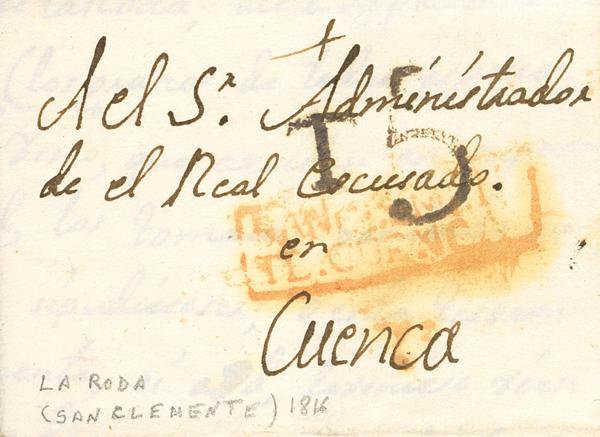 A el S.r Administrador
15
de el Real Escusado.
en
Cuenca
LA RODA
(SAN CLEMENTE) 1816